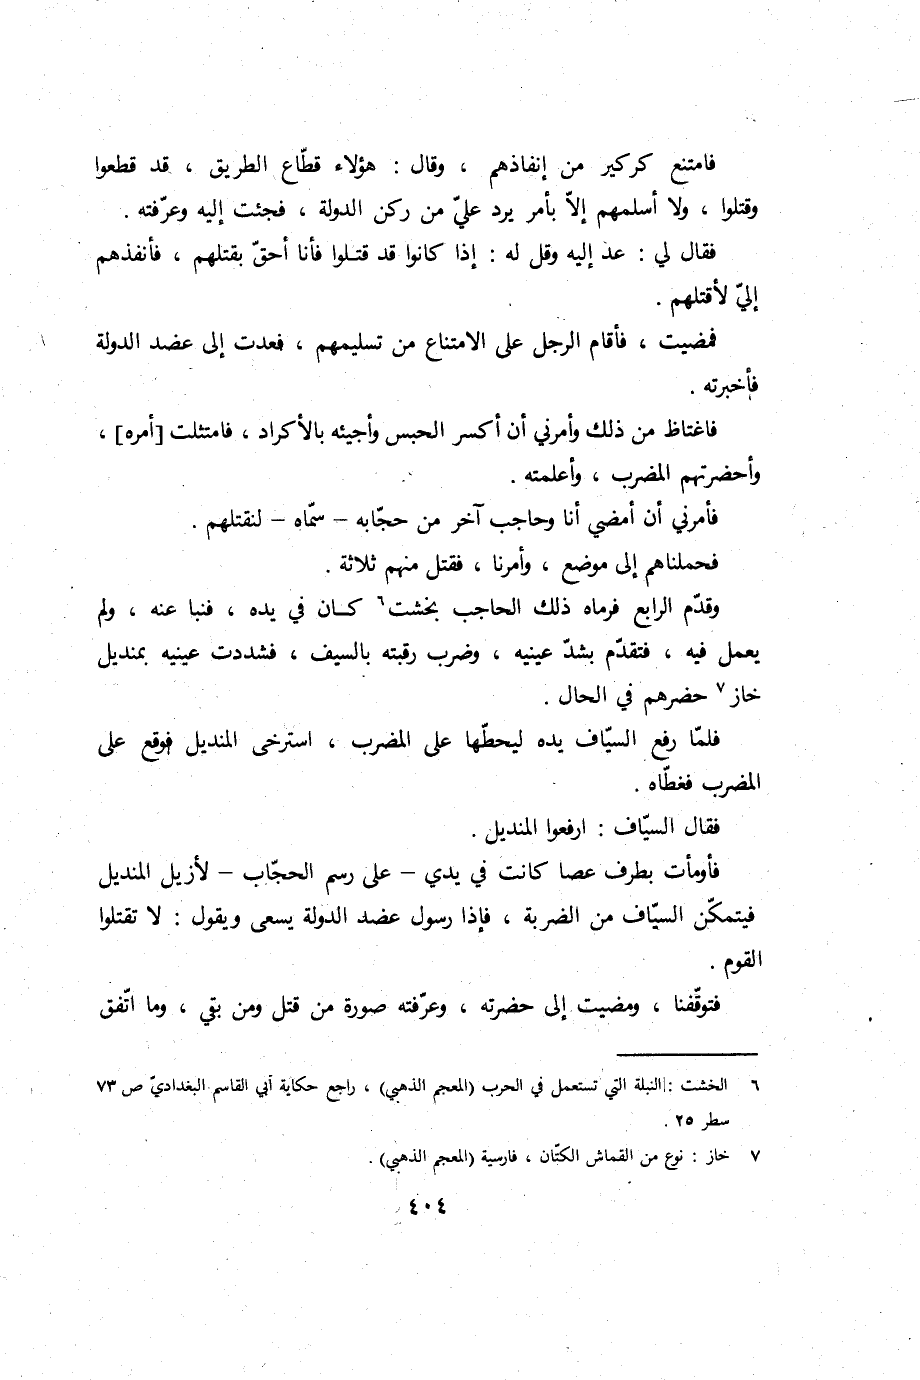 فامتنع كركير من إنفاذهم ، وقال : هؤلاء قطّاع الطريق ، قد قطعوا
وقتلوا ، ولا أسلمهم إلاّ بأمر يرد عليّ من ركن الدولة ، فجئت إليه وعرّفته .
فقال لي : عد إليه وقل له : إذا كانوا قد قتلوا فأنا أحقّ بقتلهم ، فأنفذهم
إليّ لأقتلهم .
فمضيت ، فأقام الرجل على الامتناع من تسليمهم ، فعدت إلى عضد الدولة
فأخبرته .
فاغتاظ من ذلك وأمرني أن أكسر الحبس وأجيئه بالأكراد ، فامتثلت [أمره] ،
وأحضرتهم المضرب ، وأعلمته .
فأمرني أن أمضي أنا وحاجب آخر من حجّابه – سمّاه – لنقتلهم .
فحملناهم إلى موضع ، وأمرنا ، فقتل منهم ثلاثة .
وقدّم الرابع فرماه ذلك الحاجب بخشت٦ كان في يده ، فنبا عنه ، ولم
يعمل فيه ، فتقدّم بشدّ عينيه ، وضرب رقبته بالسيف ، فشددت عينيه بمنديل
خاز٧ حضرهم في الحال .
فلمّا رفع السيّاف يده ليحطّها على المضرب ، استرخى المنديل فوقع على
المضرب فغطّاه .
فقال السيّاف : ارفعوا المنديل .
فأومأت بطرف عصا كانت في يدي – على رسم الحجّاب – لأزيل المنديل
فيتمكّن السيّاف من الضربة ، فإذا رسول عضد الدولة يسعى ويقول : لا تقتلوا
القوم .
فتوقّفنا ، ومضيت إلى حضرته ، وعرّفته صورة من قتل ومن بقي ، وما اتّفق
٦ الخشت : النبلة التي تستعمل في الحرب (المعجم الذهبي) ، راجع حكاية أبي القاسم البغداديّ ص ٧٣
سطر ٢٥ .
٧ خاز : نوع من القماش الكتّان ، فارسية (المعجم الذهبي) .
٤٠٤